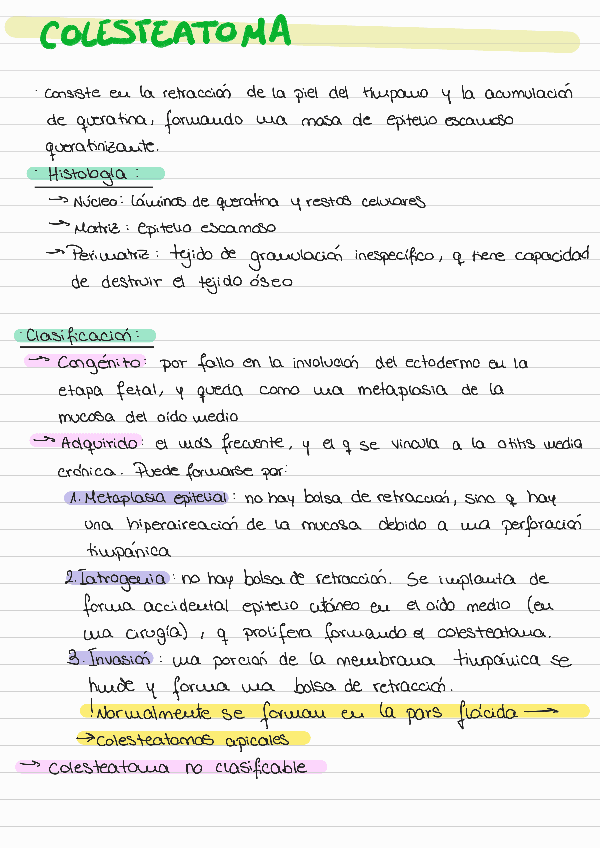 COLESTEATOMA
· Consiste en la retracción de la piel del tímpano y la acumulación
de queratina, formando una masa de epitelio escamoso
queratinizante.
· Histología:
→ Núcleo: láminas de queratina y restos celulares
→ Matriz: epitelio escamoso
→ Perimatriz: tejido de granulación inespecífico, q tiene capacidad
de destruir el tejido óseo
· Clasificación:
→ Congénito: por fallo en la involución del ectodermo en la
etapa fetal, y queda como una metaplasia de la
mucosa del oído medio
→ Adquirido: el más frecuente, y el q se vincula a la otitis media
crónica. Puede formarse por:
1. Metaplasia epitelial: no hay bolsa de retracción, sino q hay
una hiperaireación de la mucosa debido a una perforación
timpánica
2. Iatrogenia: no hay bolsa de retracción. Se implanta de
forma accidental epitelio cutáneo en el oído medio (en
una cirugía), q prolifera formando el colesteatoma.
3. Invasión: una porción de la membrana timpánica se
hunde y forma una bolsa de retracción.
! Normalmente se forman en la pars flácida →
→ Colesteatomas apicales
→ Colesteatoma no clasificable